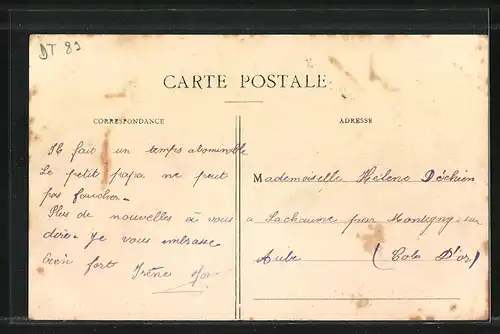 DT 89
CARTE POSTALE
CORRESPONDANCE
Il fait un temps abominable
Le petit papa ne peut
pas faucher.
Plus de nouvelles à vous
dire. Je vous embrasse
bien fort Irène
ADRESSE
Mademoiselle Hélène Déchien
a Lachaume par Montigny-sur
Aube (Cote D'or)